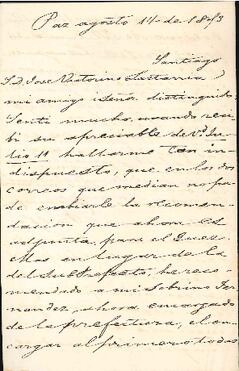 Paz agosto 14 de 18
Santiago
S. D. Jose Victorino Lastarria
mi amigo i señor distinguido
Sentí mucho, cuando reci
bi su apreciable de Vd. Ju
lio 11 hallarme tan in
dispuesto, que en los dos
correos que median no pu
de enviarle la recomen
dacion que ahora
adjunta, para el
Mas en lugar de la
del he reco
mendado a mi Sobrino Fer
nandez, ahora encargado
de la prefectura, el en
cargar al primero todos